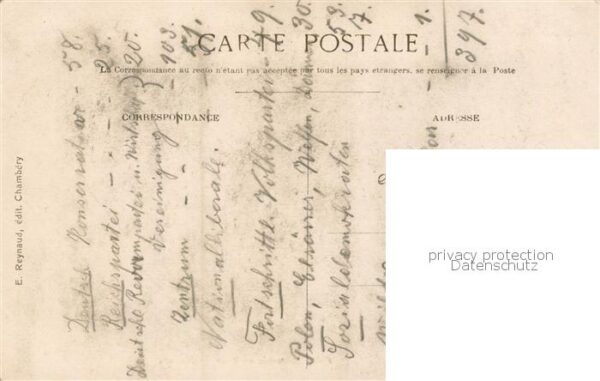 CARTE POSTALE
La Correspondance au recto n'étant pas acceptée par tous les pays etrangers, se renseigner à la Poste
CORRESPONDANCE
ADRESSE
E. Reynaud, édit. Chambéry
Deutsch Konservative - 58.
Reichspartei - - 25.
Deutsche Reformpartei u. Wirtschaftl. } 20.
Vereinigung
Zentrum - - 103.
Nationalliberale. 51.
Fortschrittl. Volkspartei - 49.
Polen, Elsässer, Welfen, 30.
Sozialdemokraten 53.
Wilde 7.
- 1.
397.
privacy protection
Datenschutz